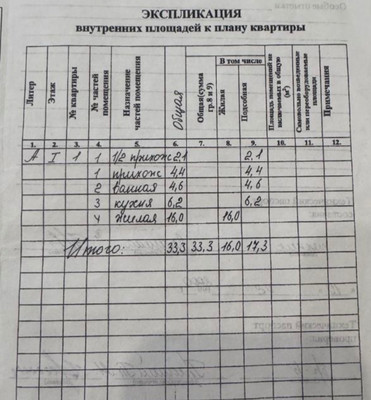 ЭКСПЛИКАЦИЯ
внутренних площадей к плану квартиры
Литер
Этаж
№ квартиры
№ частей помещения
Назначение частей помещения
Общая
Общая(сумма гр.8 и 9)
В том числе
Жилая
Подсобная
Площадь помещений не включаемых в общую (м²)
Самовольно возведенные или переоборудованные площади
Примечания
1. 2. 3. 4. 5. 6. 7. 8. 9. 10. 11. 12.
А I 1 1 1/2 прихож 2,1 2,1
1 прихож 4,4 4,4
2 ванная 4,6 4,6
3 кухня 6,2 6,2
4 жилая 16,0 16,0
Итого: 33,3 33,3 16,0 17,3